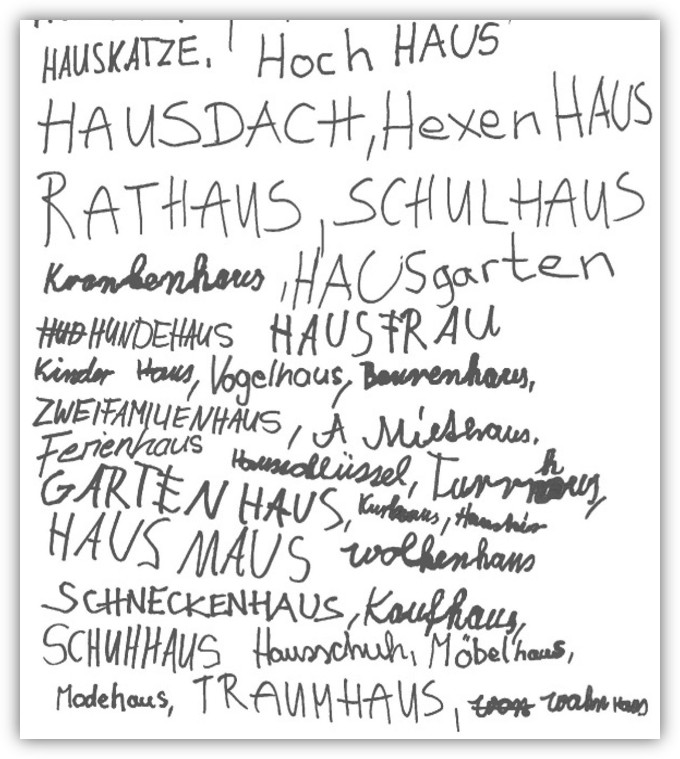 HAUSKATZE, Hoch HAUS
HAUSDACH, Hexen HAUS
RATHAUS, SCHULHAUS
Krankenhaus, HAUSgarten
HUNDEHAUS HAUSFRAU
Kinder Haus, Vogelhaus, Bauernhaus,
ZWEIFAMILIENHAUS, A Miethaus.
Ferienhaus Hausschlüssel,
GARTEN HAUS,
HAUS MAUS wolkenhaus
SCHNECKENHAUS, Kaufhaus,
SCHUHHAUS Hausschuh, Möbelhaus,
Modehaus, TRAUMHAUS, Haus